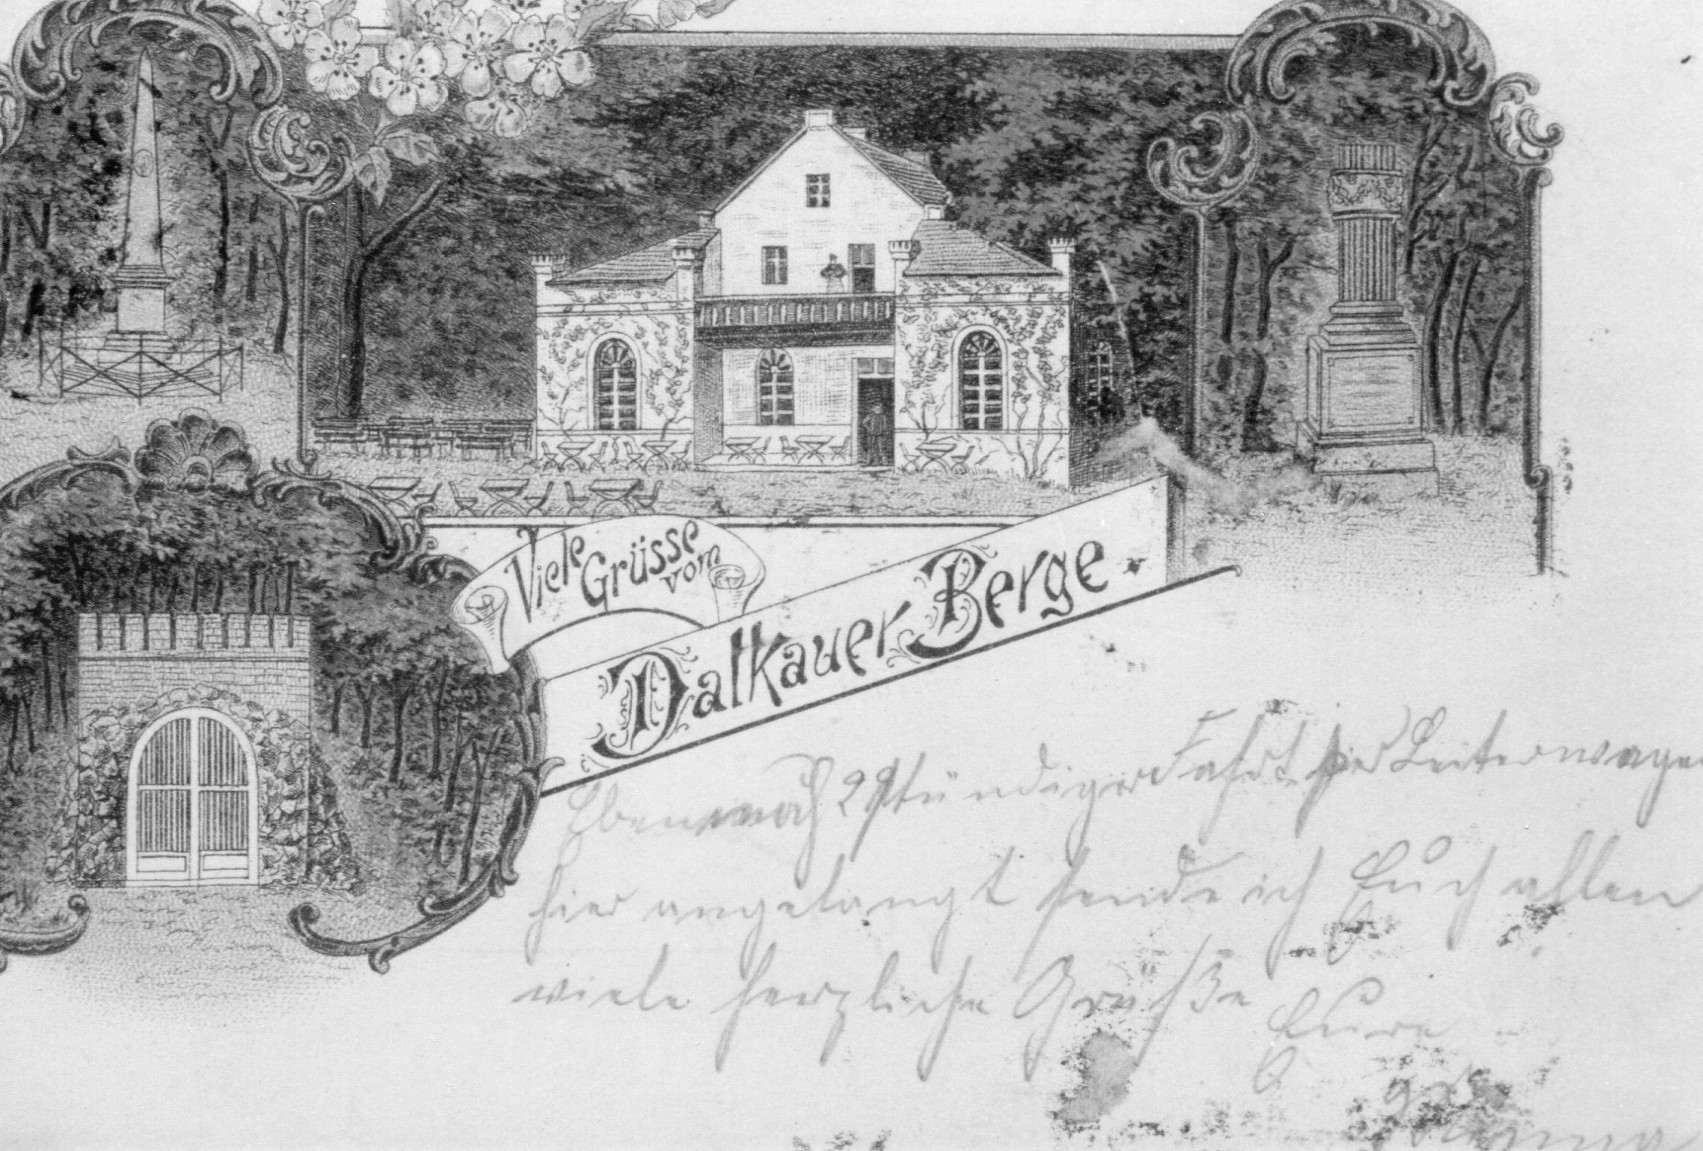 Viele
Grüsse
vom
Dalkauer Berge.
Eben nach 2 stündiger Fahrt per Leiterwagen
hier angelangt sende ich Euch allen
viele herzliche Grüße
Eure